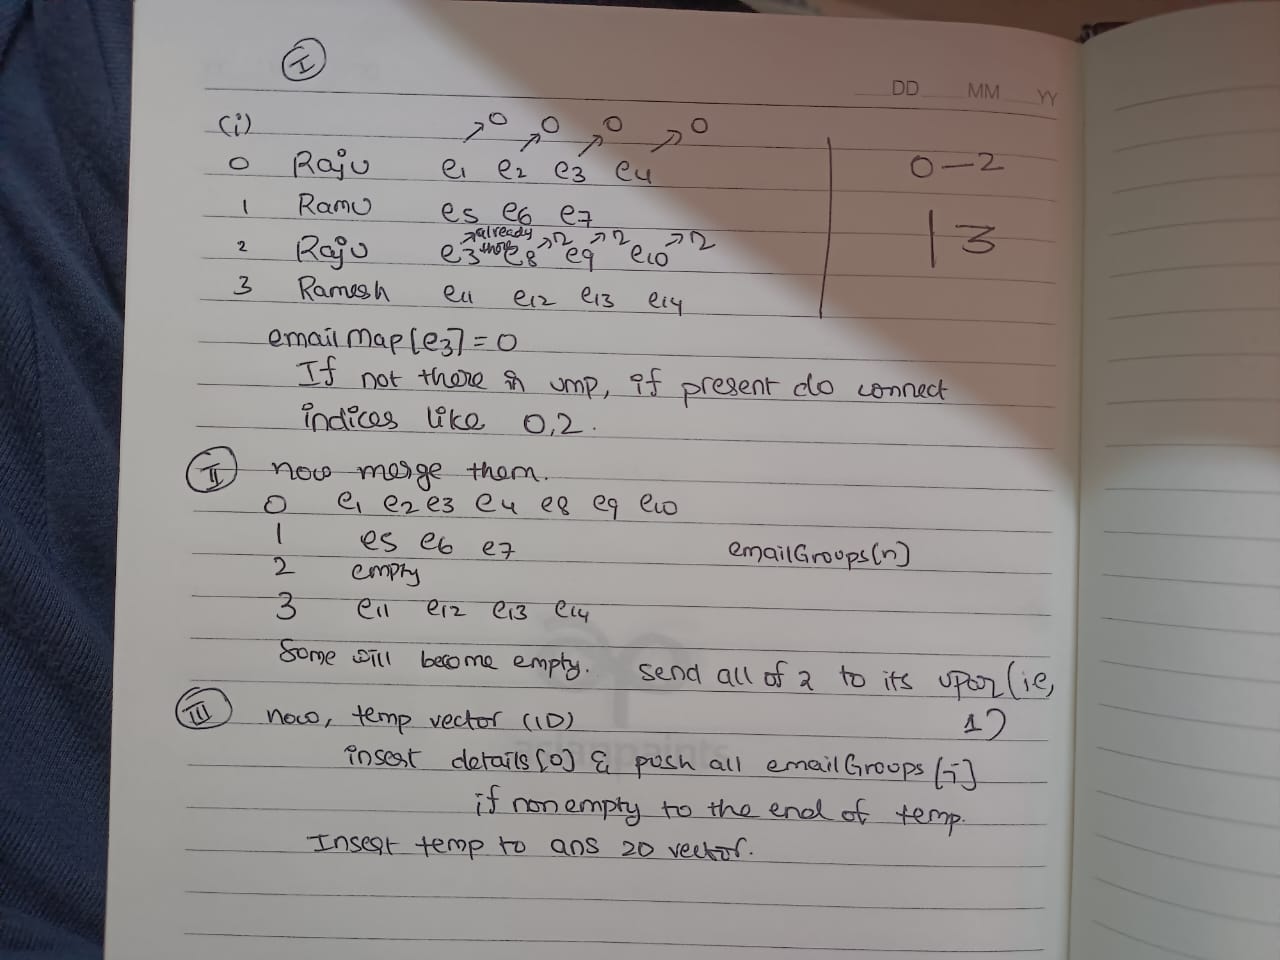 I
DD MM YY
(i) →0 →0 →0 →0
0 Raju e1 e2 e3 e4 0—2
1 Ramu e5 e6 e7 1 3
→already there →2 →2 →2
2 Raju e3 e8 e9 e10
3 Ramesh e11 e12 e13 e14
email Map[e3] = 0
If not there in ump, if present do connect
indices like 0,2.
II now merge them.
0 e1 e2 e3 e4 e8 e9 e10
1 e5 e6 e7 emailGroups[n]
2 empty
3 e11 e12 e13 e14
Some will become empty. send all of 2 to its upar (ie,
1)
III now, temp vector (1D)
insert details[0] & push all emailGroups[i]
if nonempty to the end of temp.
Insert temp to ans 2D vector.
asianpaints